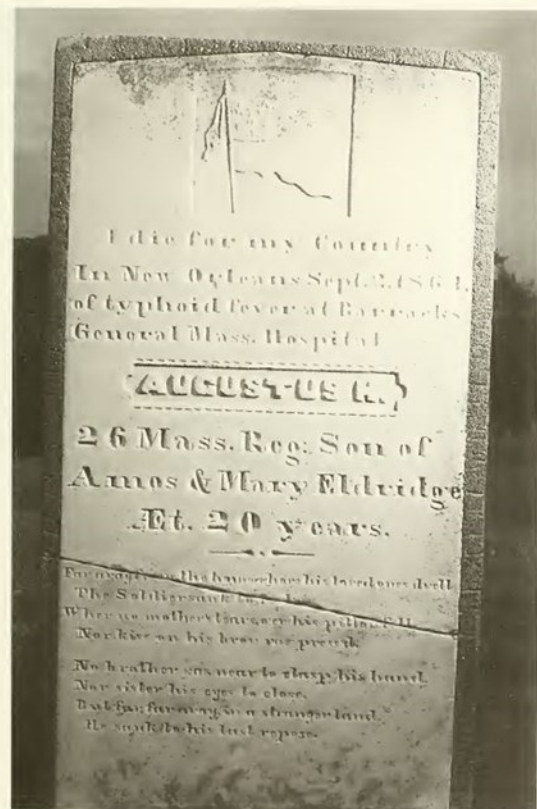 I die for my Country
In New Orleans Sept. 2, 1864,
of typhoid fever at Barracks
General Mass. Hospital
AUGUSTUS H.
26 Mass. Reg: Son of
Amos & Mary Eldridge
Æt. 20 years.
Far away the home where his loved ones dwell
The Soldier sank to
When no mother's tears, o'er his pillow fell
Nor kiss on his brow
No brother was near to clasp his hand,
Nor sister his eyes to close.
But far, far away, in a stranger land,
He sank to his last repose.